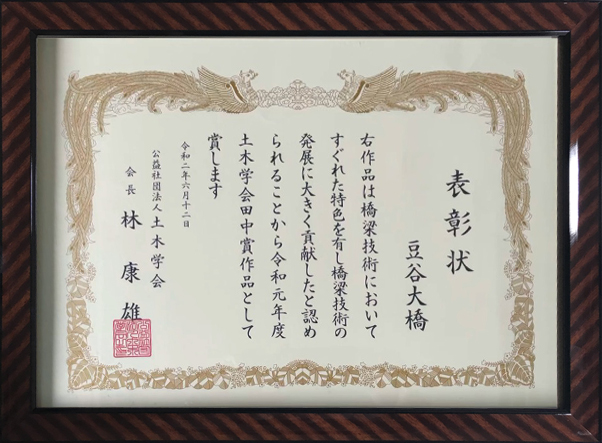 表彰状
豆谷大橋
右作品は橋梁技術において
すぐれた特色を有し橋梁技術の
発展に大きく貢献したと認め
られることから令和元年度
土木学会田中賞作品として
賞します
令和二年六月十二日
公益社団法人土木学会
会長 林康雄